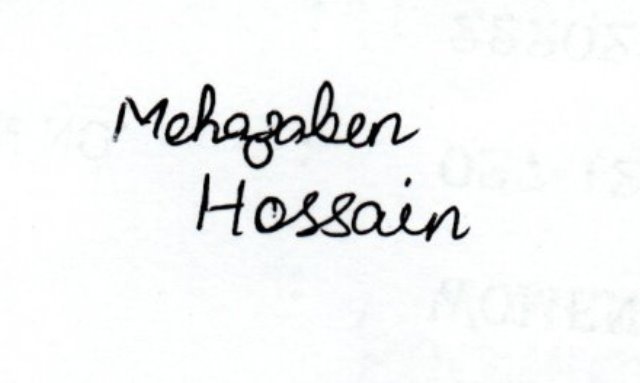 Mehazaben
Hossain